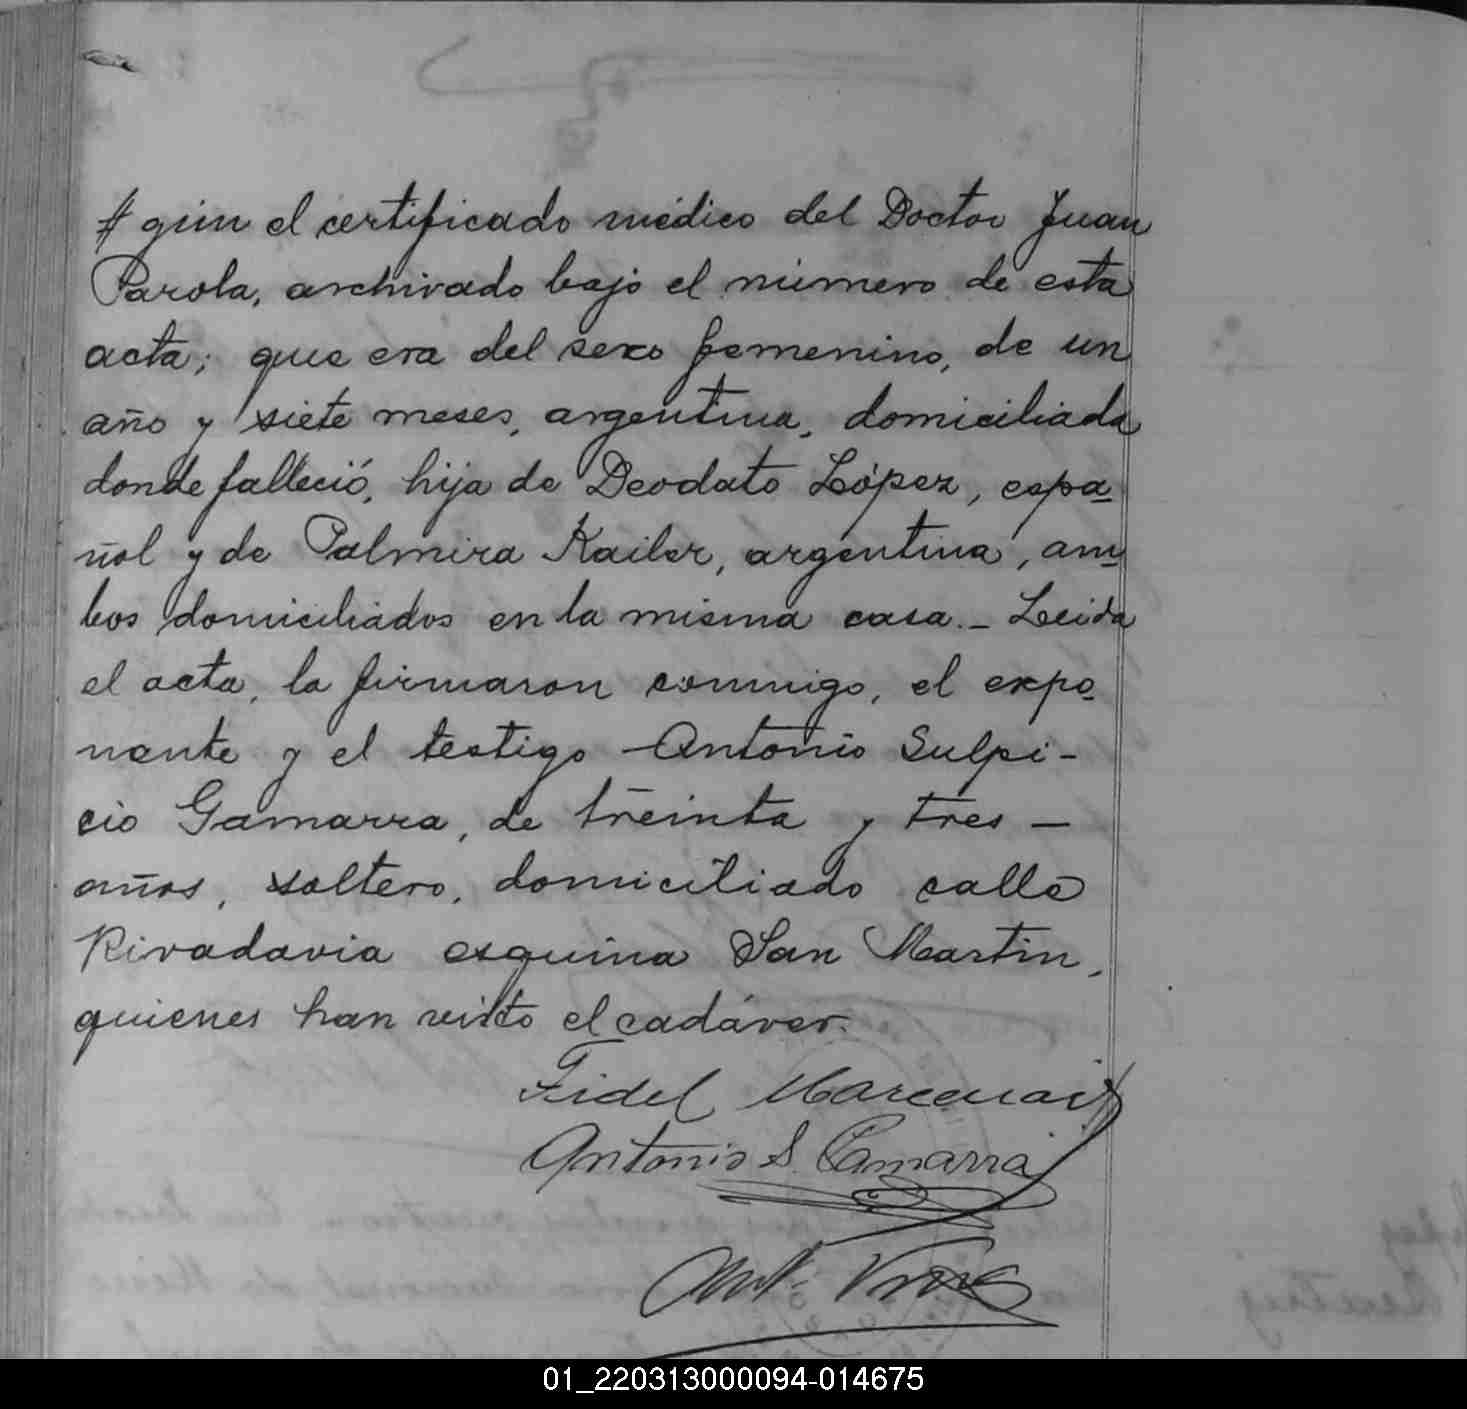 # gún el certificado médico del Doctor Juan
Parola, archivado bajo el número de esta
acta; que era del sexo femenino, de un
año y siete meses, argentina, domiciliada
donde falleció, hija de Deodato López, espa-
ñol y de Palmira Kailer, argentina, am-
bos domiciliados en la misma casa. - Leida
el acta, la firmaron conmigo, el expo-
nente y el testigo Antonio Sulpi-
cio Gamarra, de treinta y tres -
años, soltero, domiciliado calle
Rivadavia esquina San Martin,
quienes han visto el cadáver.
Fidel
Antonio S. Gamarra
01_220313000094-014675